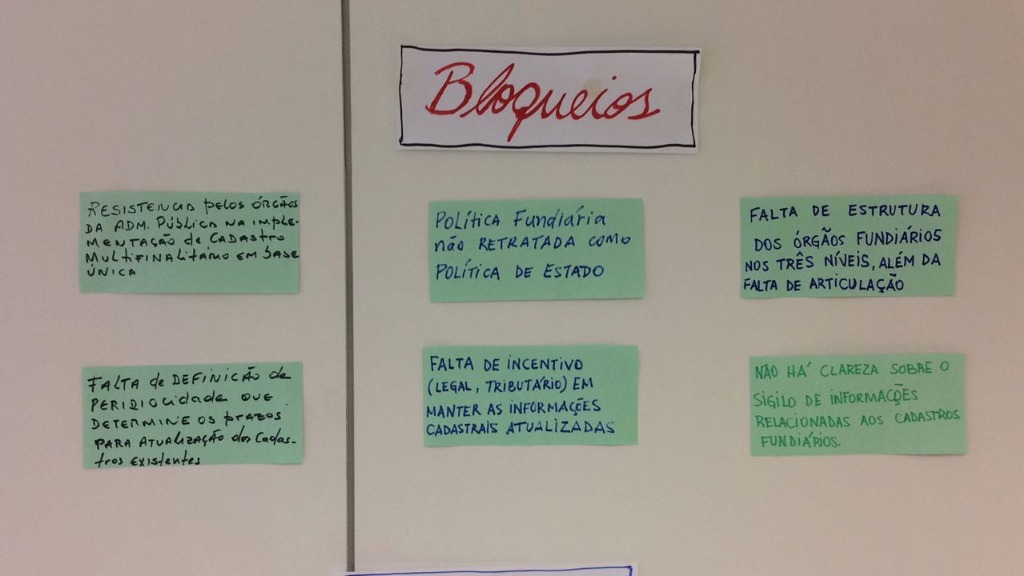 Bloqueios
RESISTENCIA pelos ÓRGÃOS
DA ADM. Pública NA IMPLE-
MENTAÇÃO de CADASTRO
MULTIFINALITARIO EM BASE
ÚNICA
POLÍTICA Fundiária
não RETRATADA COMO
POLÍTICA DE ESTADO
FALTA DE ESTRUTURA
DOS ÓRGÃOS FUNDIÁRIOS
NOS TRÊS NÍVEIS, ALÉM DA
FALTA DE ARTICULAÇÃO
FALTA de DEFINIÇÃO de
PERIDIOCIdade que
DETERMINE OS prazos
PARA ATUALIZAÇÃO dos Cadas-
tros EXISTENTES
FALTA DE INCENTIVO
(LEGAL, TRIBUTÁRIO) EM
MANTER AS INFORMAÇÕES
CADASTRAIS ATUALIZADAS
NÃO HÁ CLAREZA SOBRE O
SIGILO DE INFORMAÇÕES
RELACIONADAS AOS CADASTROS
FUNDIÁRIOS.